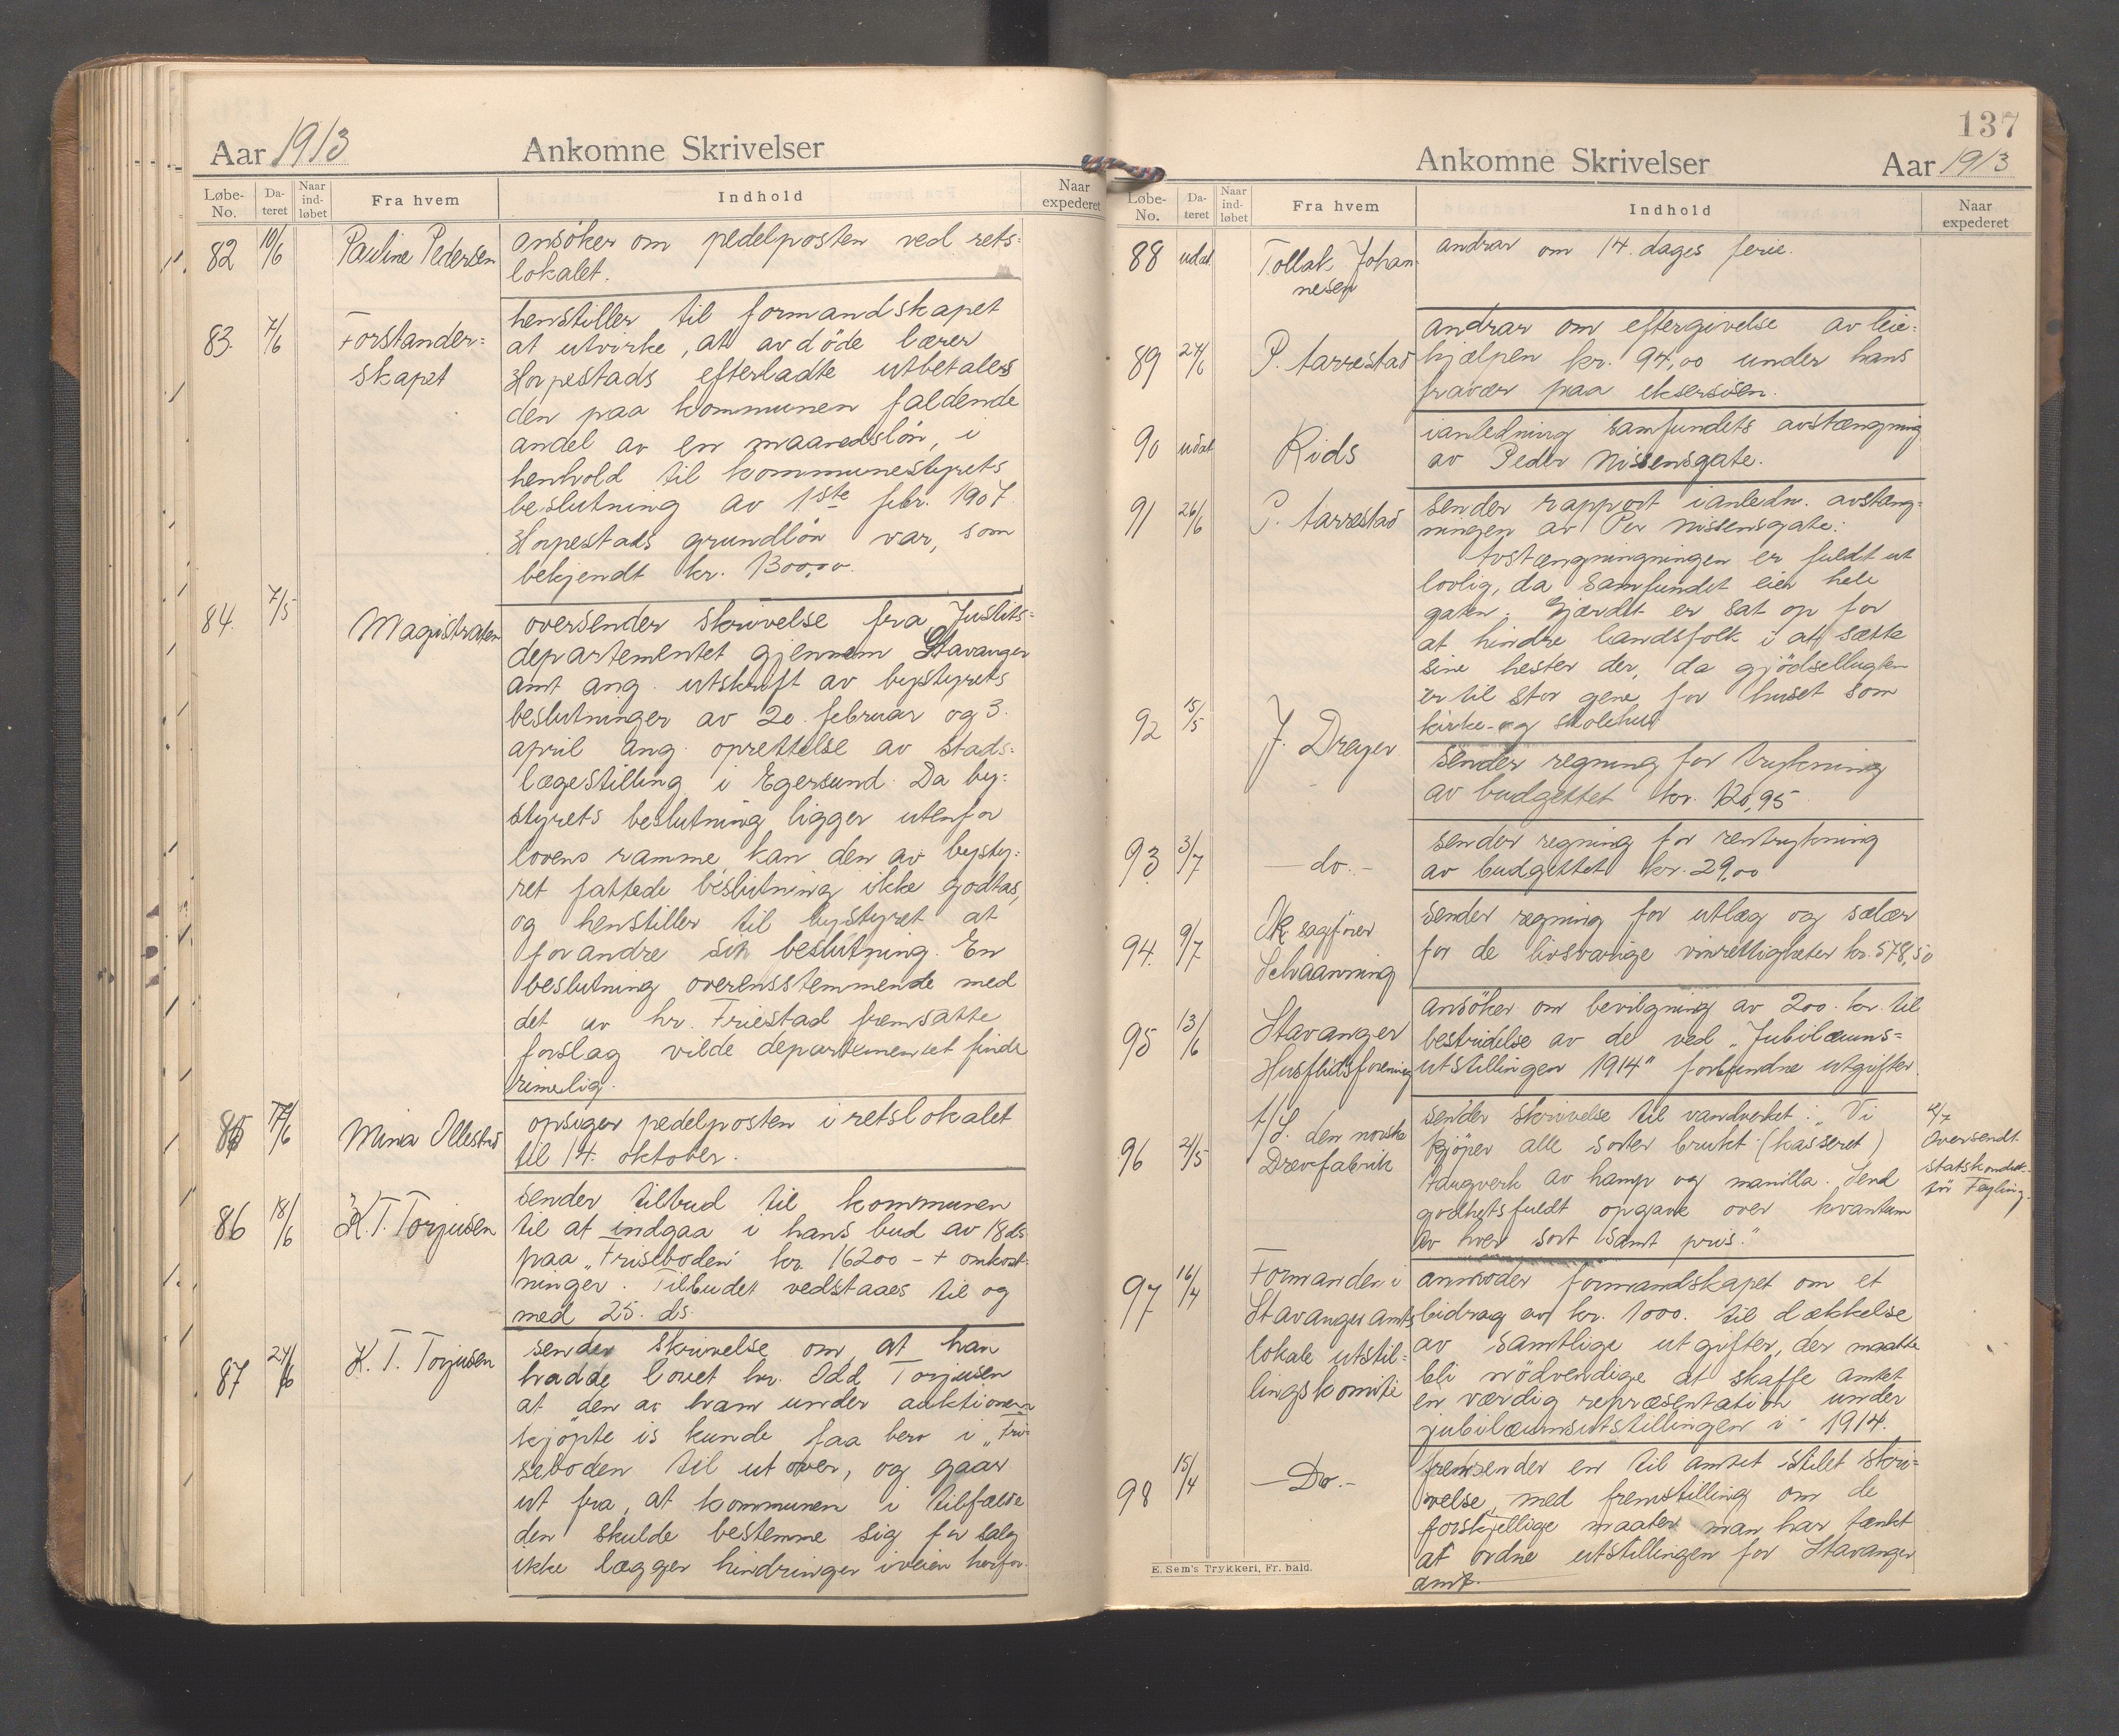 Aar 1913 Ankomne Skrivelser
Løbe-No. Da-teret Naar ind-løbet Fra hvem Indhold Naar expederet
82 10/6 Pauline Pedersen ansöker om pedelposten ved rets=
lokalet.
83. 7/6 Forstander=
skapet
henstiller til formandskapet
at utvirke, at avdöde lærer
Horpestads efterladte utbetales
den paa kommunen faldende
andel av en maanedslön, i
henhold til kommunestyrets
beslutning av 1ste febr. 1907.
Horpestads grundlön var, som
bekjendt kr. 1300,00.
84. 7/5 Magistraten oversender skrivelse fra Justits=
departementet gjennem Stavanger
amt ang. utskrift av bystyrets
beslutninger av 20. februar og 3.
april ang. oprettelse av stads=
lægestilling i Egersund. Da by=
styrets beslutning ligger utenfor
lovens ramme kan den av bysty=
ret fattede beslutning ikke godtas,
og henstiller til bystyret at
forandre sin beslutning. En
beslutning overensstemmende med
det av hr. Friestad fremsatte
forslag vilde departementet finde
rimelig.
85 17/6 Mina Ollestad opsiger pedelposten i retslokalet
til 14. oktober.
86 18/6 K. T. Torjusen
sender tilbud til kommunen
til at indgaa i hans bud av 18 ds
paa „Friseboden" kr. 16200 - + omkost=
ninger. Tilbudet vedstaaes til og
med 25. ds.
87 24/6 K. T. Torjusen
sender skrivelse om at han
hadde lovet hr. Odd Torjusen
at den av ham under auktionen
kjöpte is kunde faa bero i „Fri=
seboden til utover, og gaar
ut fra, at kommunen i tilfælde
den skulde bestemme sig for salg
ikke lægger hindringer iveien herfor.
137
Ankomne Skrivelser Aar 1913
Løbe-No. Da-teret Naar ind-løbet Fra hvem Indhold Naar expederet
88 udat. Tollak Johan
nesen
andrar om 14. dages ferie.
89 24/6 P. Aarrestad
andrar om eftergivelse av leie=
hjælpen kr. 94,00 under hans
fravær paa eksersisen.
90 udat Rids
ianledning samfundets avstængning
av Peder Nissensgate.
91 26/6 P. Aarrestad
sender rapport ianledn. avstæng=
ningen av Per Nissensgate:
Avstængningningen er fuldt ut
lovlig, da samfundet eier hele
gaten. Gjærdet er sat op for
at hindre landsfolk i at sætte
sine hester der, da gjödsellugten
er til stor gene for huset som
kirke- og skolehus
92 15/5 J. Dreyer
sender regning for trykning
av budgettet kr. 120,95
93. 3/7 — do. — sender regning for rentrykning
av budgettet kr. 29,00
94. 9/7 Ok. sagförer
Schaanning
sender regning for utlæg og salær
for de livsvarige vinrettigheter kr. 578,50
95 13/6 Stavanger
Husflidsforening
ansöker om bevilgning av 200. kr. til
bestridelse av de ved „Jubilæums=
utstillingen 1914" forbundne utgifter.
96 21/5 A/S. den norske
Drevfabrik
sender skrivelse til vandverket: „Vi
kjöper alle sorter brukt (kasseret)
taugverk av hamp og manilla. Send
godhetsfuldt opgave over kvantum
av hver sort samt pris."
Oversendt
statskonduk=
tör Feyling.
97 16/4 Formanden i
Stavanger amts
lokale utstil=
lingskomite
anmoder formandskapet om et
bidrag av kr. 1000. til dækkelse
av samtlige utgifter, der maatte
bli nödvendige at skaffe amtet
en værdig repræsentation under
jubilæumsutstillingen i 1914.
98 15/4 — Do. —
fremsender en til amtet stilet skri=
velse, med fremstilling om de
forskjellige maater man har tænkt
at ordne utstillingen for Stavanger
amt.
E. Sem's Trykkeri, Fr. hald.